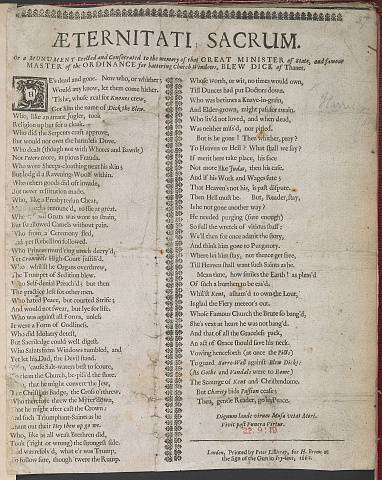 ÆTERNITATI SACRUM.
Or a MONUMENT Erected and Consecrated to the memory of that GREAT MINISTER of State, and famous
MASTER of the ORDINANCE for battering Church-Windows, BLEW DICK of Thanet.
HE's dead and gone. Now who, or whither;
Would any know, let them come hither.
This he, whose zeal for
Got him the name of Dick the Blew.
Who, like an arrant Jugler, took
Religion up but for a cloak.
Who did the Serpents craft approve,
But would not own the harmless Dove.
Who dealt (though not with Whores and Bawds)
Not more, in pious Frauds.
Who wore Sheeps-cloathing next his skin
But lodg'd a Ravening-Woolf within.
Who others goods did oft invade,
But never restitution made.
Who, like a Presbyterian Cheat,
Goats was wont to strain,
But swallowed Camels without pain.
Who from a Ceremony fled,
and yet Rebellion swallowed.
Who Prince-murthering much decry'd;
Yet High-Court justifi'd.
Who, whilst he Organs overthrew,
The Trumpet of Sedition blew.
Who Self-denial Preach'd; but then
The practice left for other men.
Who hated Peace, but courted Strife;
And would not swear, but lye for life,
Who was against all Form, unless
It were a Form of Godliness.
Who did Idolatry detest,
But Sacriledge could well digest.
Who Saints from Windows tumbled, and
Yet let his Dad, the Devil stand.
'cause Salt-waters best to scoure,
the Church, be-piss'd the Tower.
that he might convert the Jew,
The Christian Badge, the Cross o'rethrew,
Who therefore threw the Miter down,
that he might after cast the Crown:
and such Triumphant-Saint as he
Saint out their Hey then up go we.
Who, like as all weak Brethren did,
Took (right or wrong) the strongest side.
and was resolv'd, what e'r was Trump,
To follow sute, though 'twere the Rump.
Whose worth, or wit, no times would own,
Till Dunces had put Doctors down.
Who was betimes a Knave-in-grain,
And Elder-grown, might pass for twain.
Who liv'd not loved, and when dead,
Was neither miss'd, nor pitied.
But is he gone? Then whither, pray?
To Heaven or Hell? What shall we say?
If merit here take place, his face
Not more like Judas, then his case.
And if his Work and Wages sute;
That Heaven's not his, is past dispute.
Then Hell must be. But, Reader, stay,
Is he not gone another way?
He needed purging (sure enough)
So full the wretch of vitious stuff:
We'll then for once admit the story,
And think him gone to Purgatory.
Where let him stay, nor thence get free,
Till Heaven shall want such Saints as he.
Mean time, how smiles the Earth! as pleas'd
Of such a burthen to be eas'd;
Whilst Kent, asham'd to own the Lout,
Is glad the Fiery meteor's out.
Whose Famous Church the Brute so bang'd,
She's vext at heart he was not hang'd.
And that of all the Graceless pack,
An act of Grace should save his neck.
Vowing henceforth (as once the Picts)
To guard against Blew Dicks;
(As Goths and Vandals were to Rome)
The Scourge of Kent and Christendome.
But Charity bids Passion cease;
Then, gentle Reader, going Peace.
Dignum laude virum Musa vetat Mori.
Vivit post Funera Virtus.
22.9.70
London, Printed by Peter Lillicrap, for H. Brome at
the sign of the Gun in Ivy-lane, 1662.